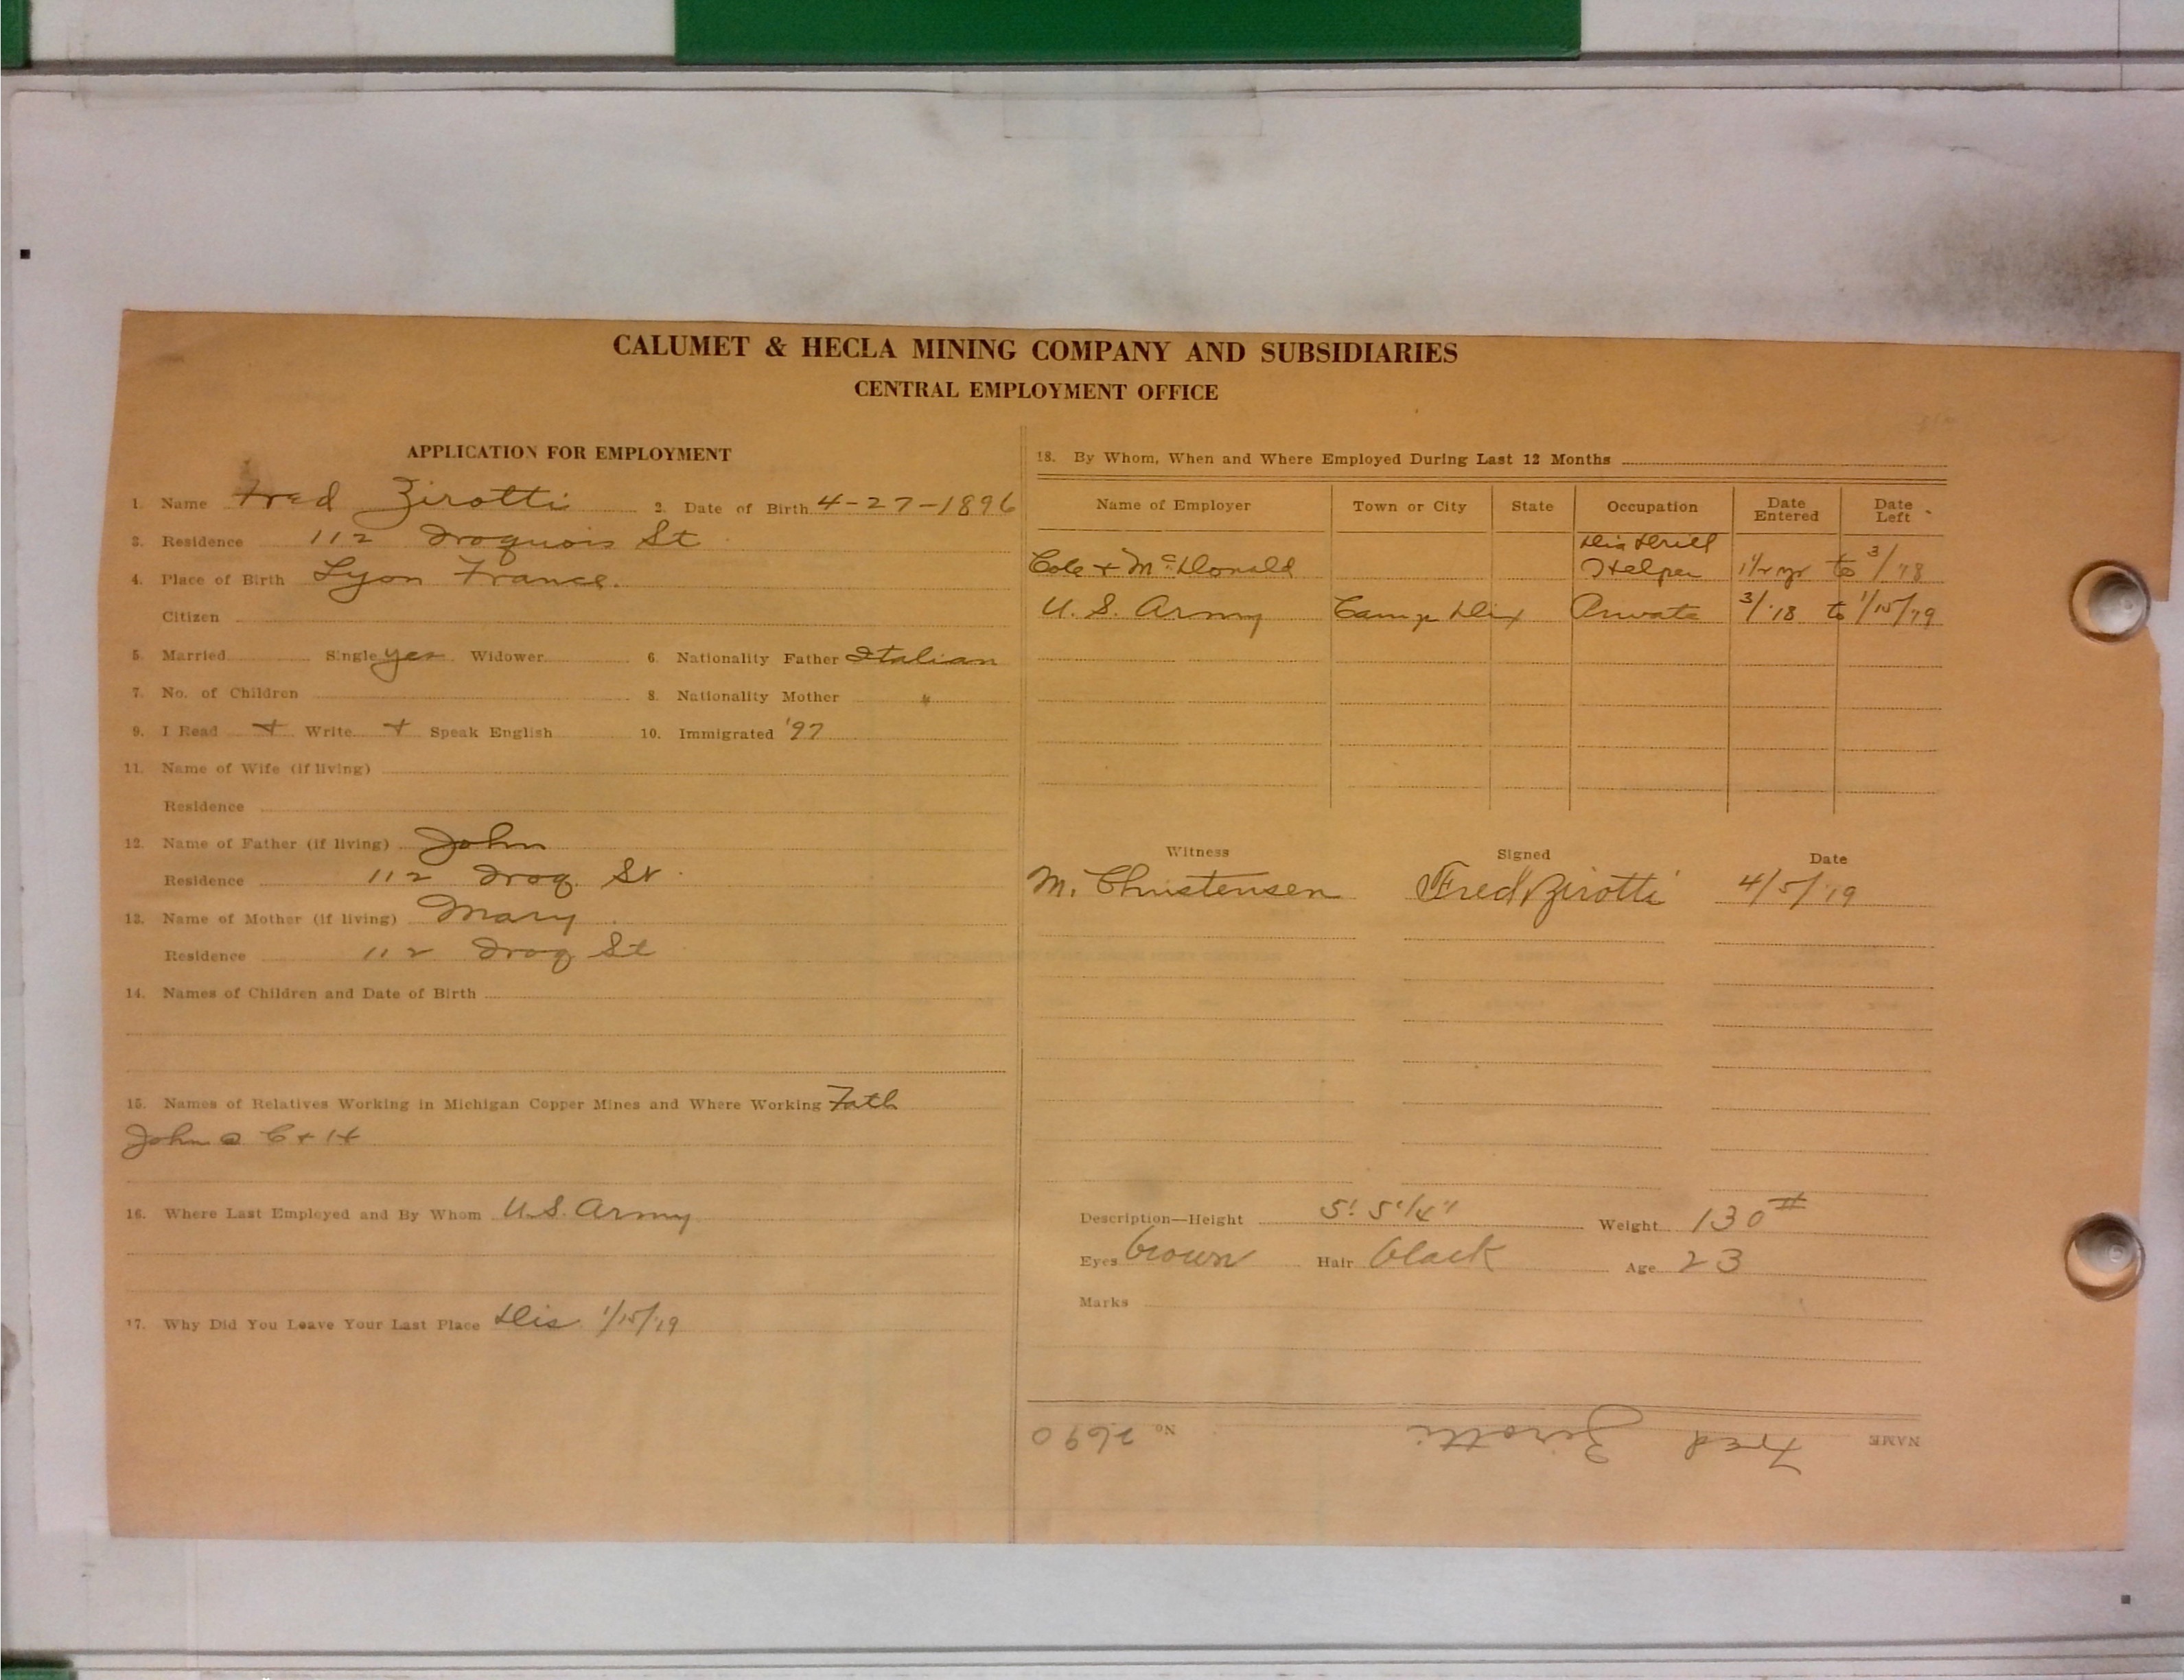 CALUMET & HECLA MINING COMPANY AND SUBSIDIARIES
CENTRAL EMPLOYMENT OFFICE
APPLICATION FOR EMPLOYMENT
1. Name Fred Zirotti 2. Date of Birth 4-27-1896
3. Residence 112 Iroquois St
4. Place of Birth Lyon France.
Citizen
5. Married Single yes Widower 6. Nationality Father Italian
7. No. of Children 8. Nationality Mother "
9. I Read + Write + Speak English 10. Immigrated '97
11. Name of Wife (if living)
Residence
12. Name of Father (if living) John
Residence 112 Iroq. St.
13. Name of Mother (if living) Mary
Residence 112 Iroq St
14. Names of Children and Date of Birth
15. Names of Relatives Working in Michigan Copper Mines and Where Working Fath
John @ C + H
16. Where Last Employed and By Whom U.S. Army
17. Why Did You Leave Your Last Place Dis. 1/15/19
18. By Whom, When and Where Employed During Last 12 Months
Name of Employer Town or City State Occupation Date Entered Date Left
Dia Drill
Cole + McDonald Helper to 3/'18
U. S. Army Camp Dix Private 3/'18 to 1/15/'19
Witness Signed Date
M. Christensen Fred Zirotti 4/5/'19
Description—Height 5' 5 1/4" Weight 130#
Eyes brown Hair black Age 23
Marks
NAME Fred Zirotti No. 2690